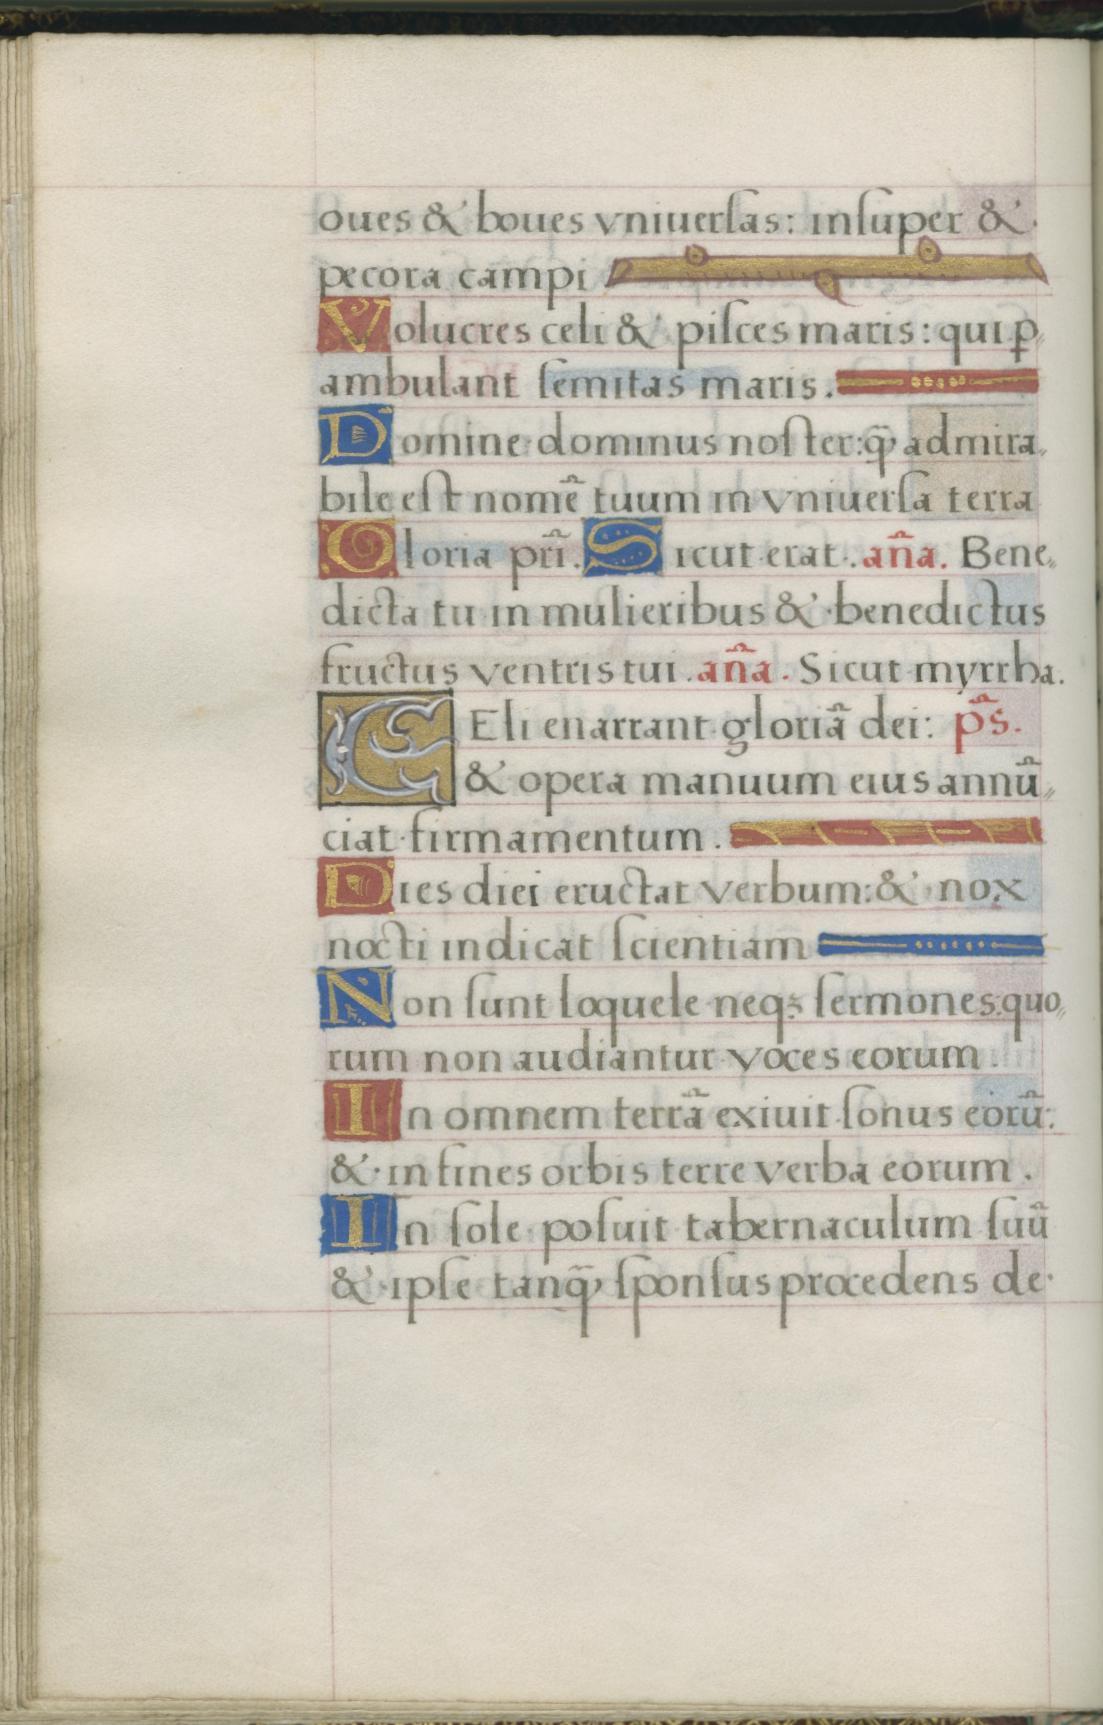 oues & boues vniuerſas: inſuper &
pecora campi
Volucres celi & piſces maris: qui ꝑ
ambulant ſemitas maris.
Domine dominus noſter: q̃ admira
bile eſt nomē tuum in vniuerſa terra
Gloria pr̃i. Sicut erat. an̄a. Bene
dicta tu in mulieribus & benedictus
fructus ventris tui. an̄a. Sicut myrrha.
CEli enarrant gloriā dei: p̄s.
& opera manuum eius annū
ciat firmamentum.
Dies diei eructat verbum: & nox
nocti indicat ſcientiam
Non ſunt loquele neqꝫ ſermones: quo
rum non audiantur voces eorum.
In omnem terrā exiuit ſonus eorū:
& in fines orbis terre verba eorum.
In ſole poſuit tabernaculum ſuū
& ipſe tanq̃ ſponſus procedens de